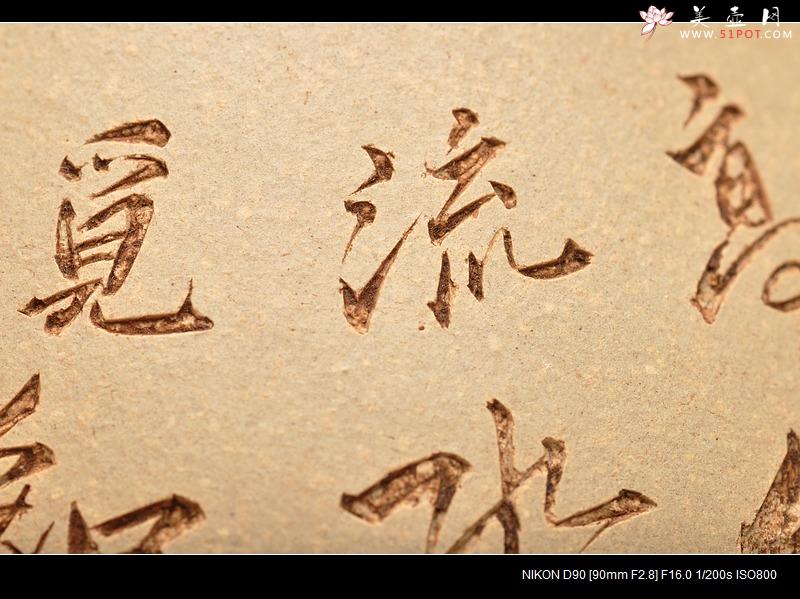 美壺网
WWW.51POT.COM
高
流水
覓知
NIKON D90 [90mm F2.8] F16.0 1/200s ISO800